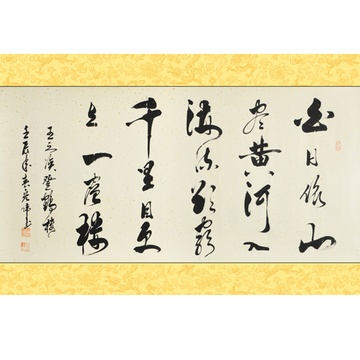 白日依山
尽黄河入
海流欲窮
千里目更
上一層楼
王之涣登鹳楼
壬辰